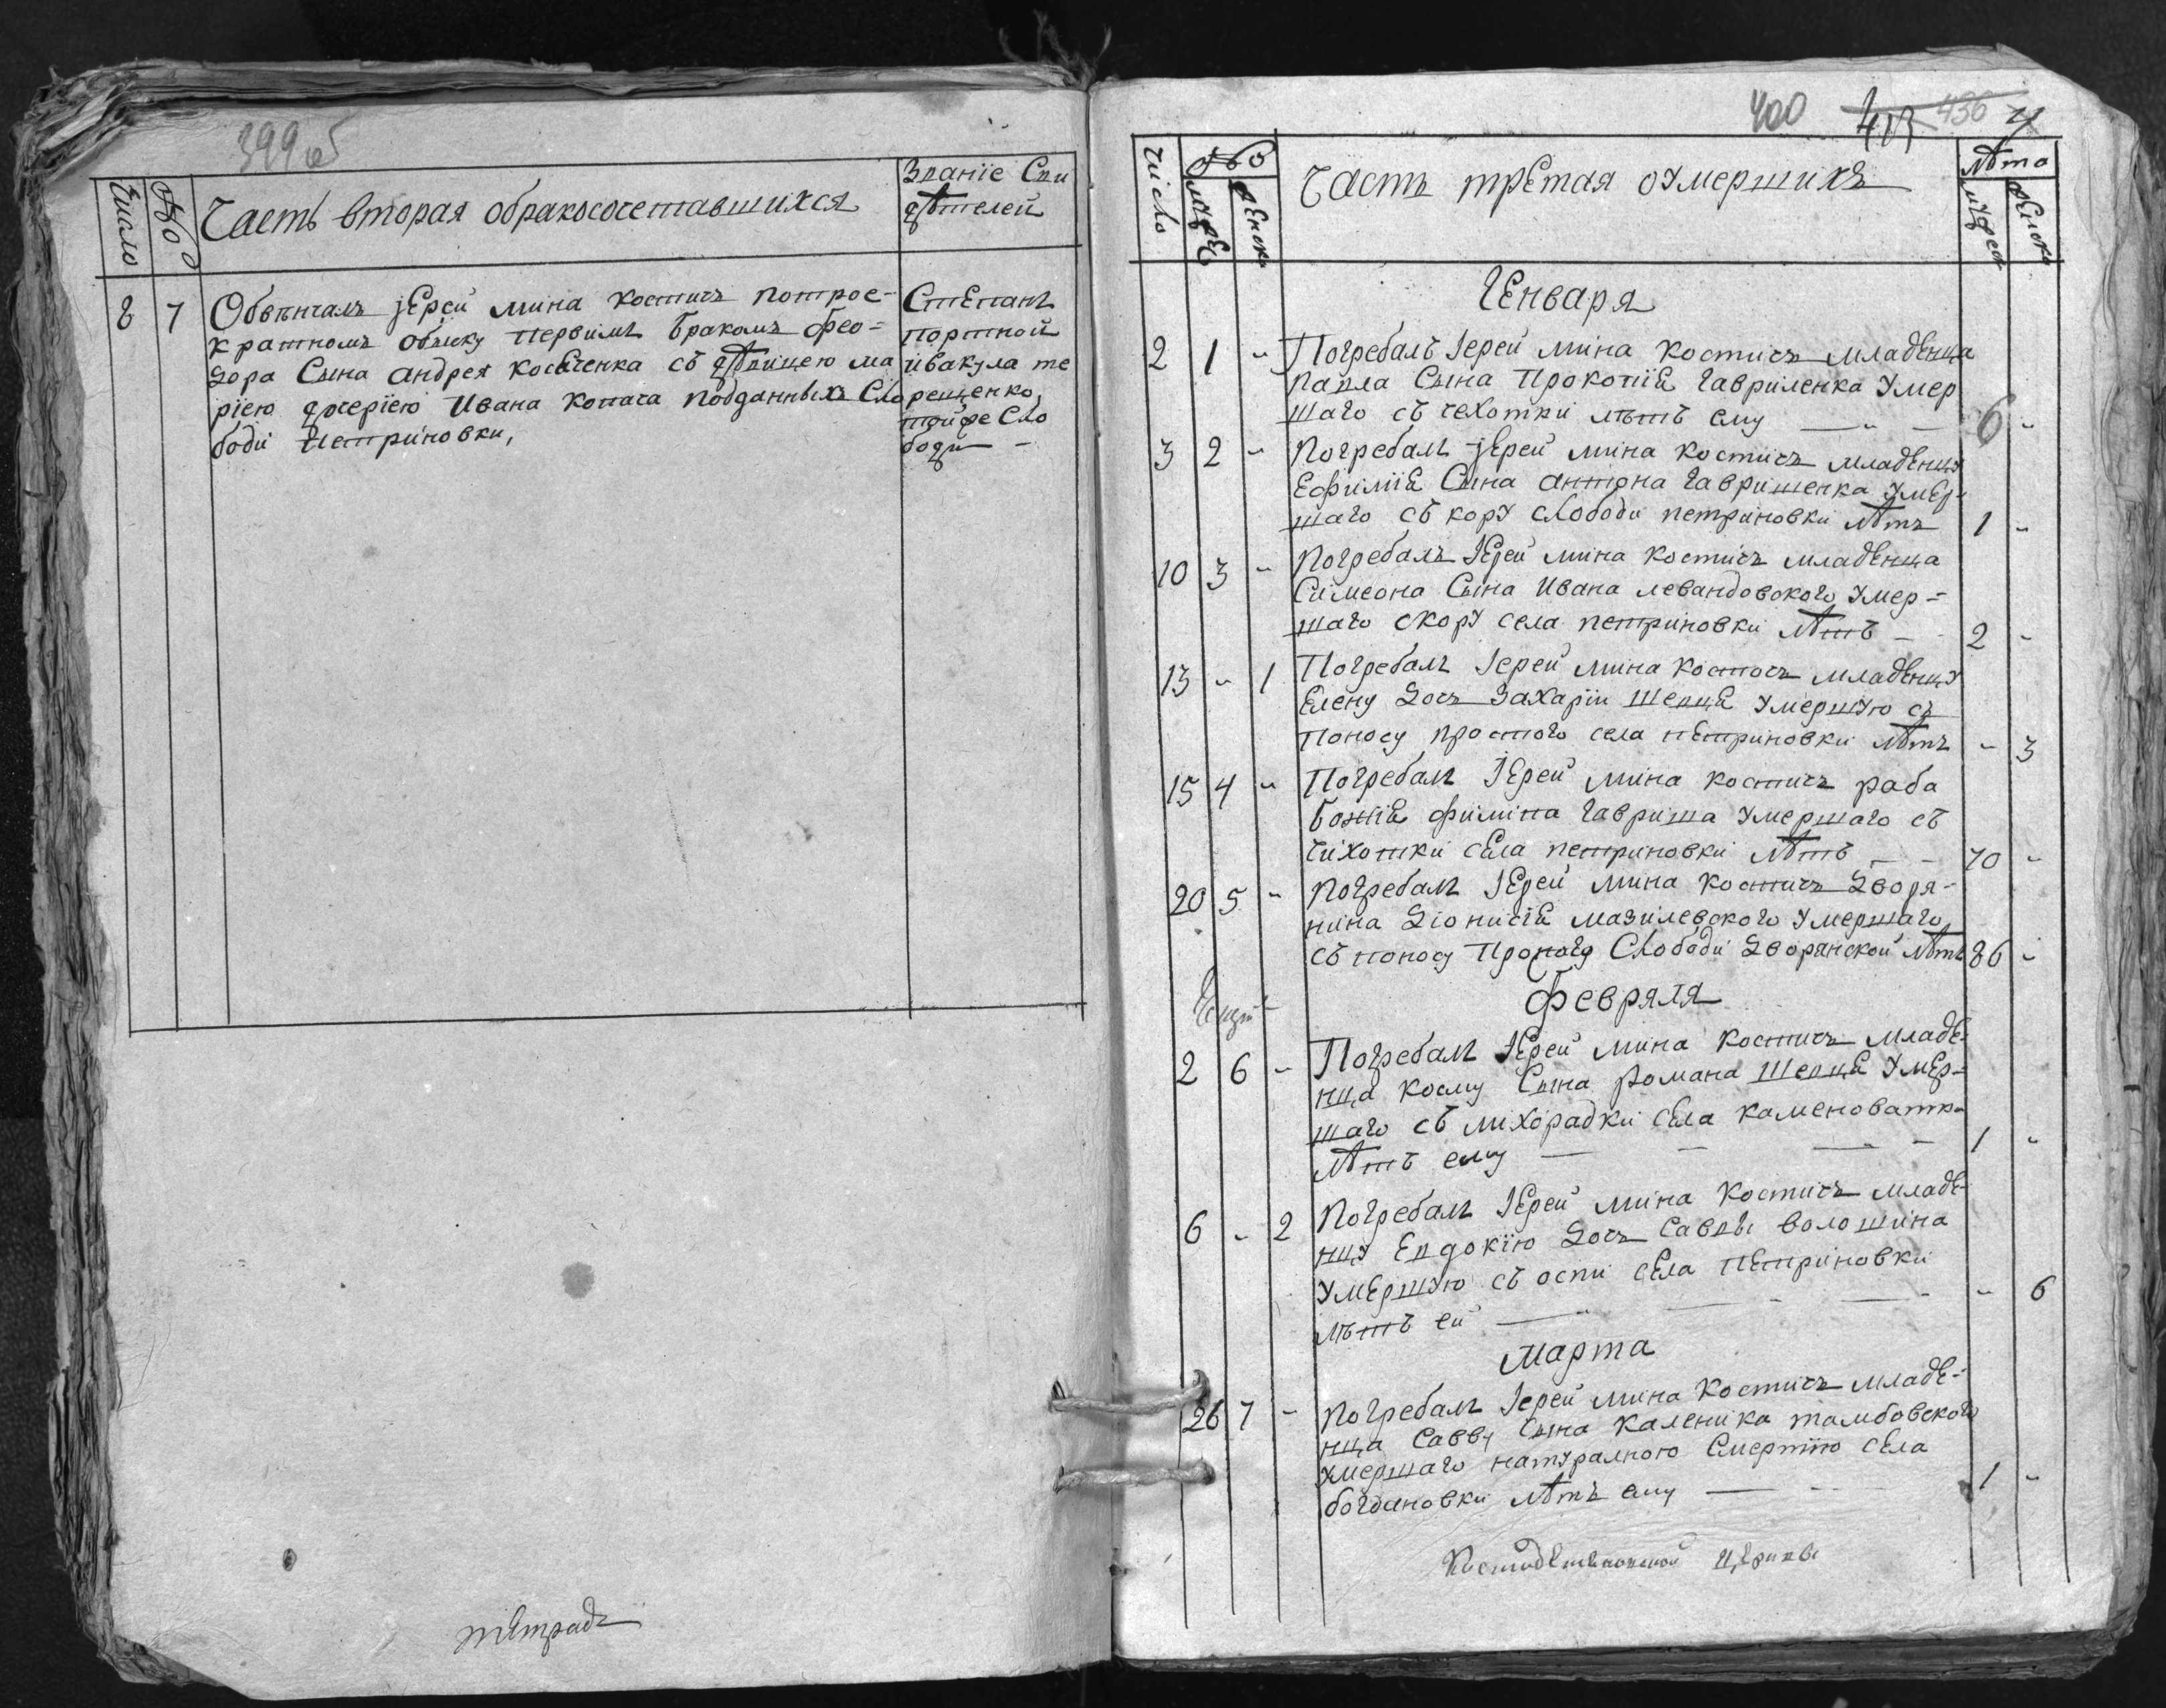 399 об
Число
№
Часть вторая обракосочетавшихся
Званіе Сви
дѣтелей
8 7 Обвѣнчалъ јерей Мина Костичъ потрое-
кратномъ обыску первимъ бракомъ Фео=
дора Сына Андрея Косѣченка съ дѣвицею Ма
ріею дочеріею Ивана Копача подданныхъ Сло
боди Петриновки,
Степанъ
портной
и Вакула те
рещенко,
тойже Сло
боди
тетрадь
400 413 436 4
Число
№
мужес
женско
Часть третая оумершихъ
Лѣто
мужеск
женско
Генваря
2 1 - Погребалъ Іерей Мина Костичъ младенца
Павла Сына Прокопіа Гавриленка Умер
шаго съ чехотки лѣтъ ему 6 -
3 2 - Погребалъ јерей Мина Костичъ младенца
Ефиміа Сина Антона Гавришенка Умер-
шаго съ кору слободи Петриновки лѣтъ 1 -
10 3 - Погребалъ Іерей Мина Костичъ младенца
Симеона Сына Ивана Левандовского Умер=
шаго скору села Петриновки лѣтъ 2 -
13 - 1 Погребалъ Іерей Мина Костичъ младенцу
Елену Дочъ Захаріи Шевца Умершую съ
поносу простого села Петриновки лѣтъ - 3
15 4 - Погребалъ Іерей Мина Костичъ раба
Божіа Филипа Гавриша Умершаго съ
чихотки села Петриновки лѣтъ 70 -
20 5 - Погребалъ Іерей Мина Костичъ Дворя-
нина Діонисіа Мазилевского Умершаго
съ поносу Слободи Дворянской лѣтъ 86 -
Февраля
2 6 - Погребалъ Іерей Мина Костичъ младе-
нца Косму Сына Романа Шевца Умер=
шаго съ лихорадки села Каменоватки
лѣтъ ему 1 -
6 - 2 Погребалъ Іерей Мина Костичъ младе-
нцу Евдокію Дочъ Саввы Волошина
Умершую съ оспи села Петриновки
лѣтъ ей - 6
Марта
26 7 - Погребалъ Іерей Мина Костичъ младе-
нца Савву Сына Каленика Тамбовского
Умершаго натуралною Смертію села
Богдановки лѣтъ ему 1 -
церкви